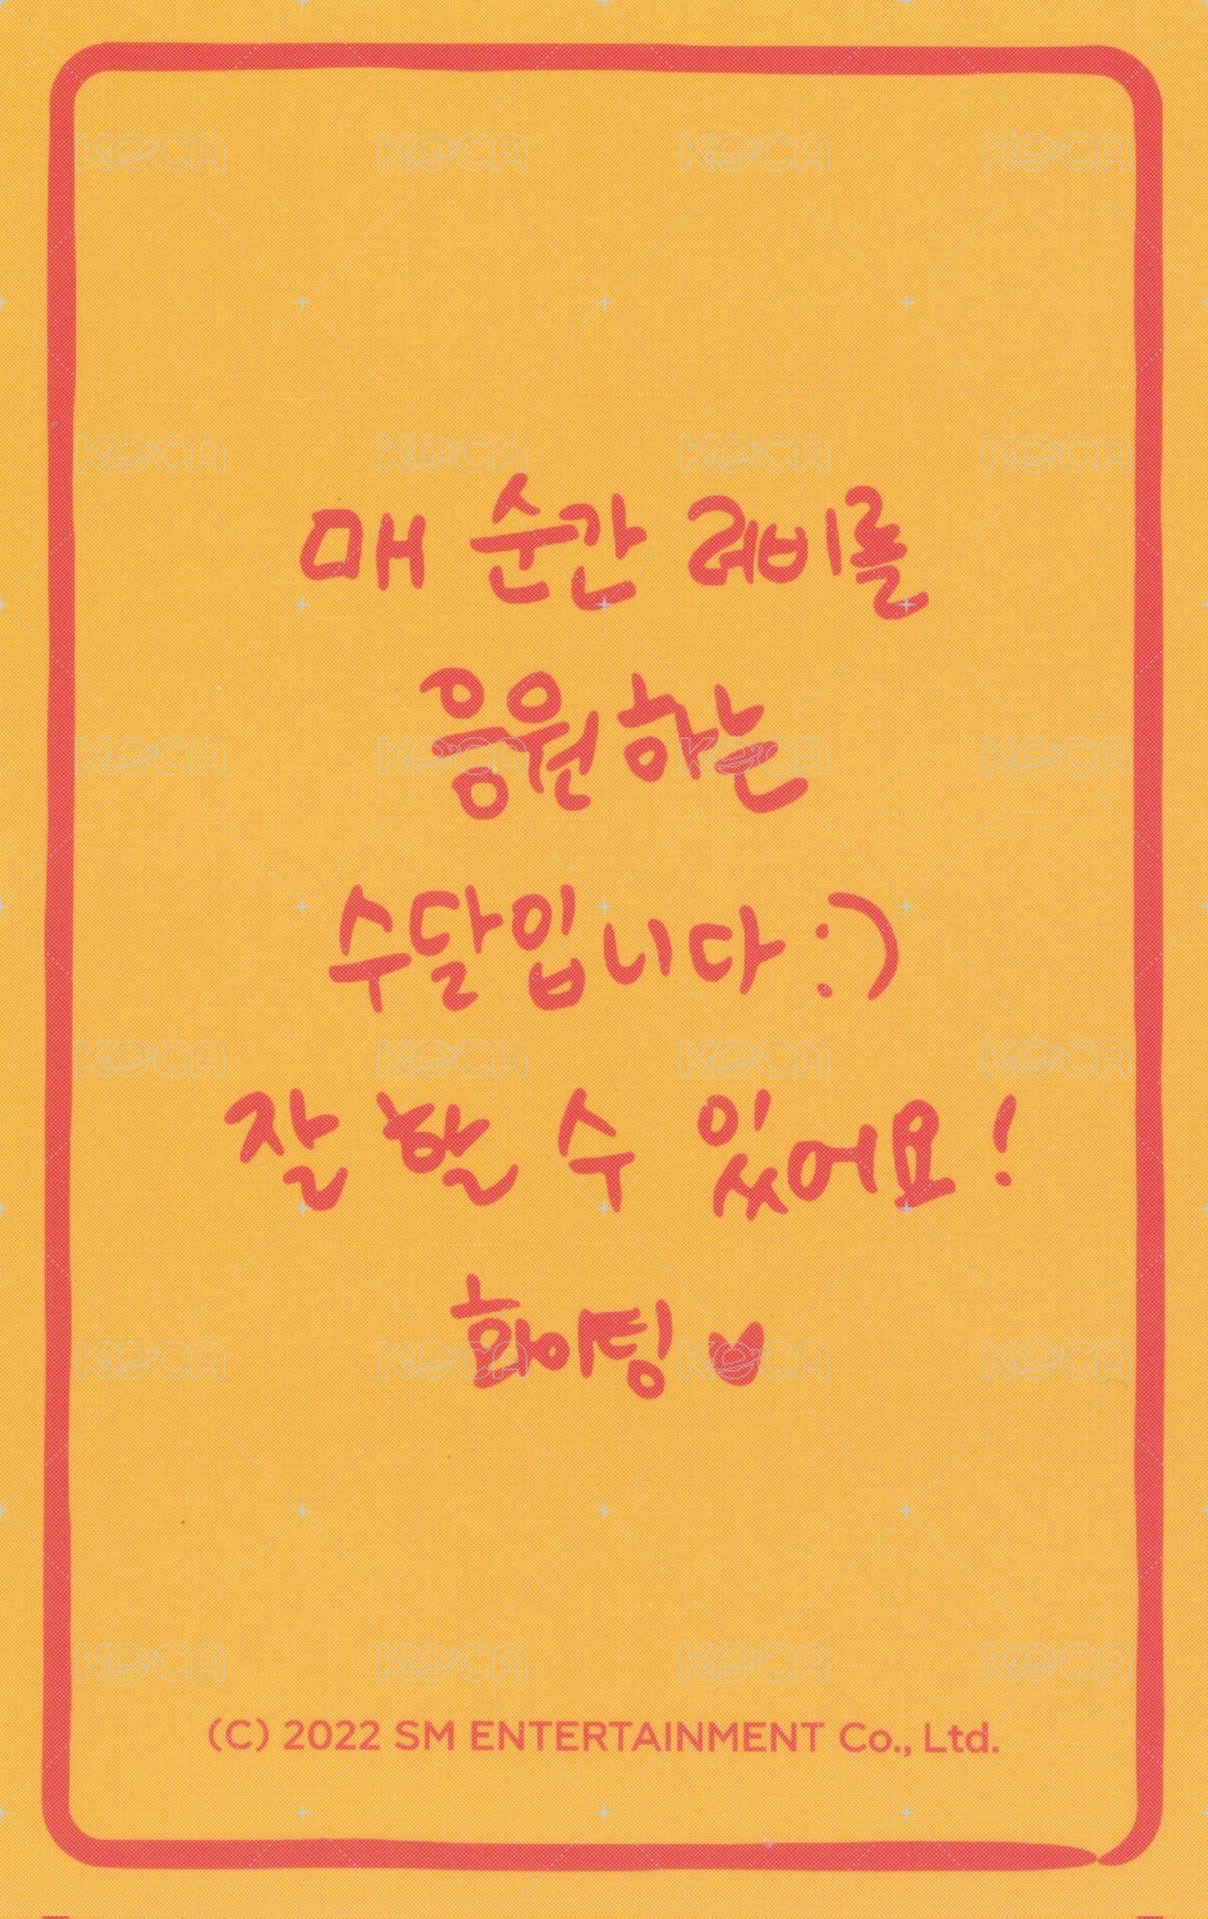 매 순간 러비를
응원하는
수달입니다 :)
잘 할 수 있어요!
화이팅♥
(C) 2022 SM ENTERTAINMENT Co., Ltd.
KOCA